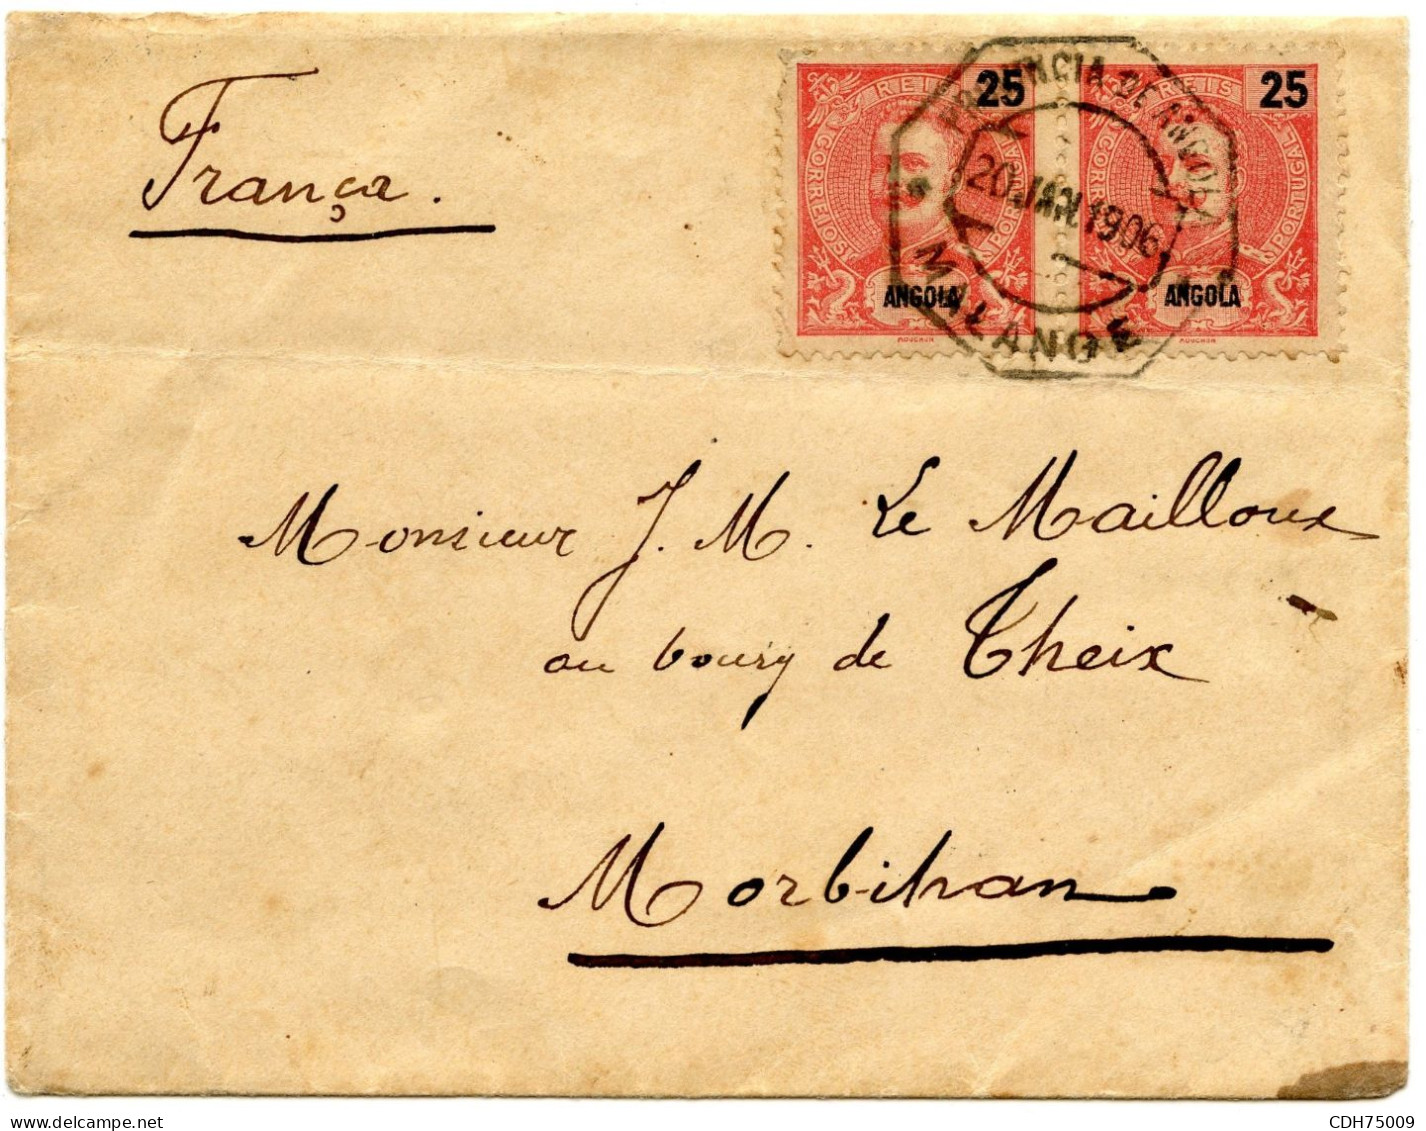 França.
25 25
REIS REIS
CORREIOS CORREIOS
PORTUGAL PORTUGAL
ANGOLA ANGOLA
MOUCHON MOUCHON
PROVINCIA DE ANGOLA
20 JAN. 1906
MALANGE
Monsieur J. M. Le Mailloux
au bourg de Theix
Morbihan
www.delcampe.net
CDH75009